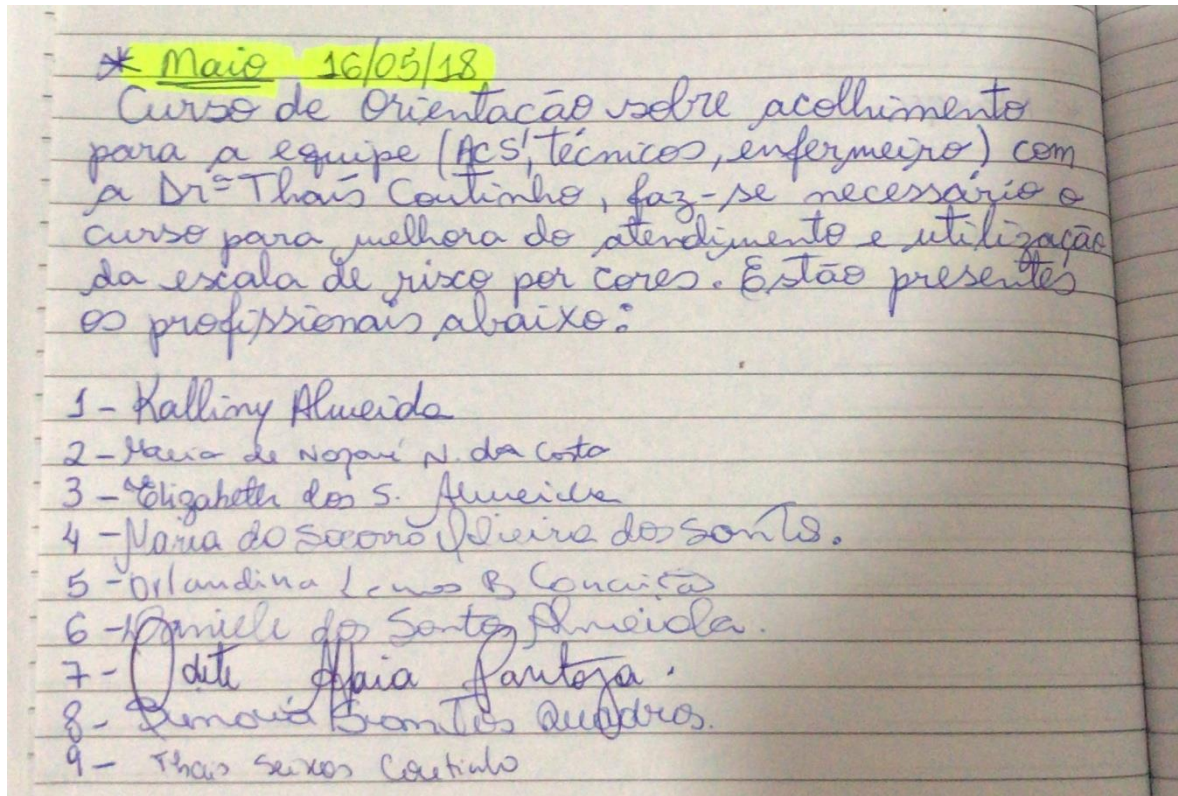 * Maio 16/05/18
Curso de Orientação sobre acolhimento
para a equipe (ACS', técnicos, enfermeiro) com
a Drª Thaís Coutinho, faz-se necessário o
curso para melhora do atendimento e utilização
da escala de risco por cores. Estão presentes
os profissionais abaixo:
1 - Kalliny Almeida
2 - Maria de Nazaré N. da Costa
3 - Elizabeth dos S. Almeida
4 - Maria do Socorro Vieira dos Santos.
5 - Orlandina Lemos B Conceição
6 - Daniele dos Santos Almeida.
7 - Odete Maia Pantoja.
8 - Quadros.
9 - Thais Seixas Coutinho